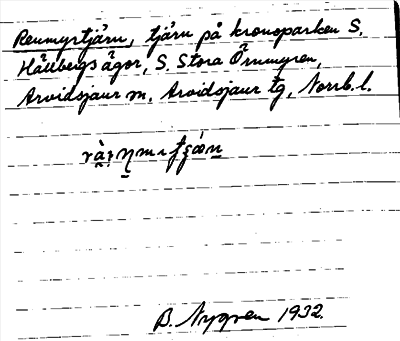 Renmyrtjärn, tjärn på kronoparken S.
Hällbergs ägor, S. Stora Örnmyren,
Arvidsjaur sn, Arvidsjaur tg, Norrb. l.
B. Nygren 1932.